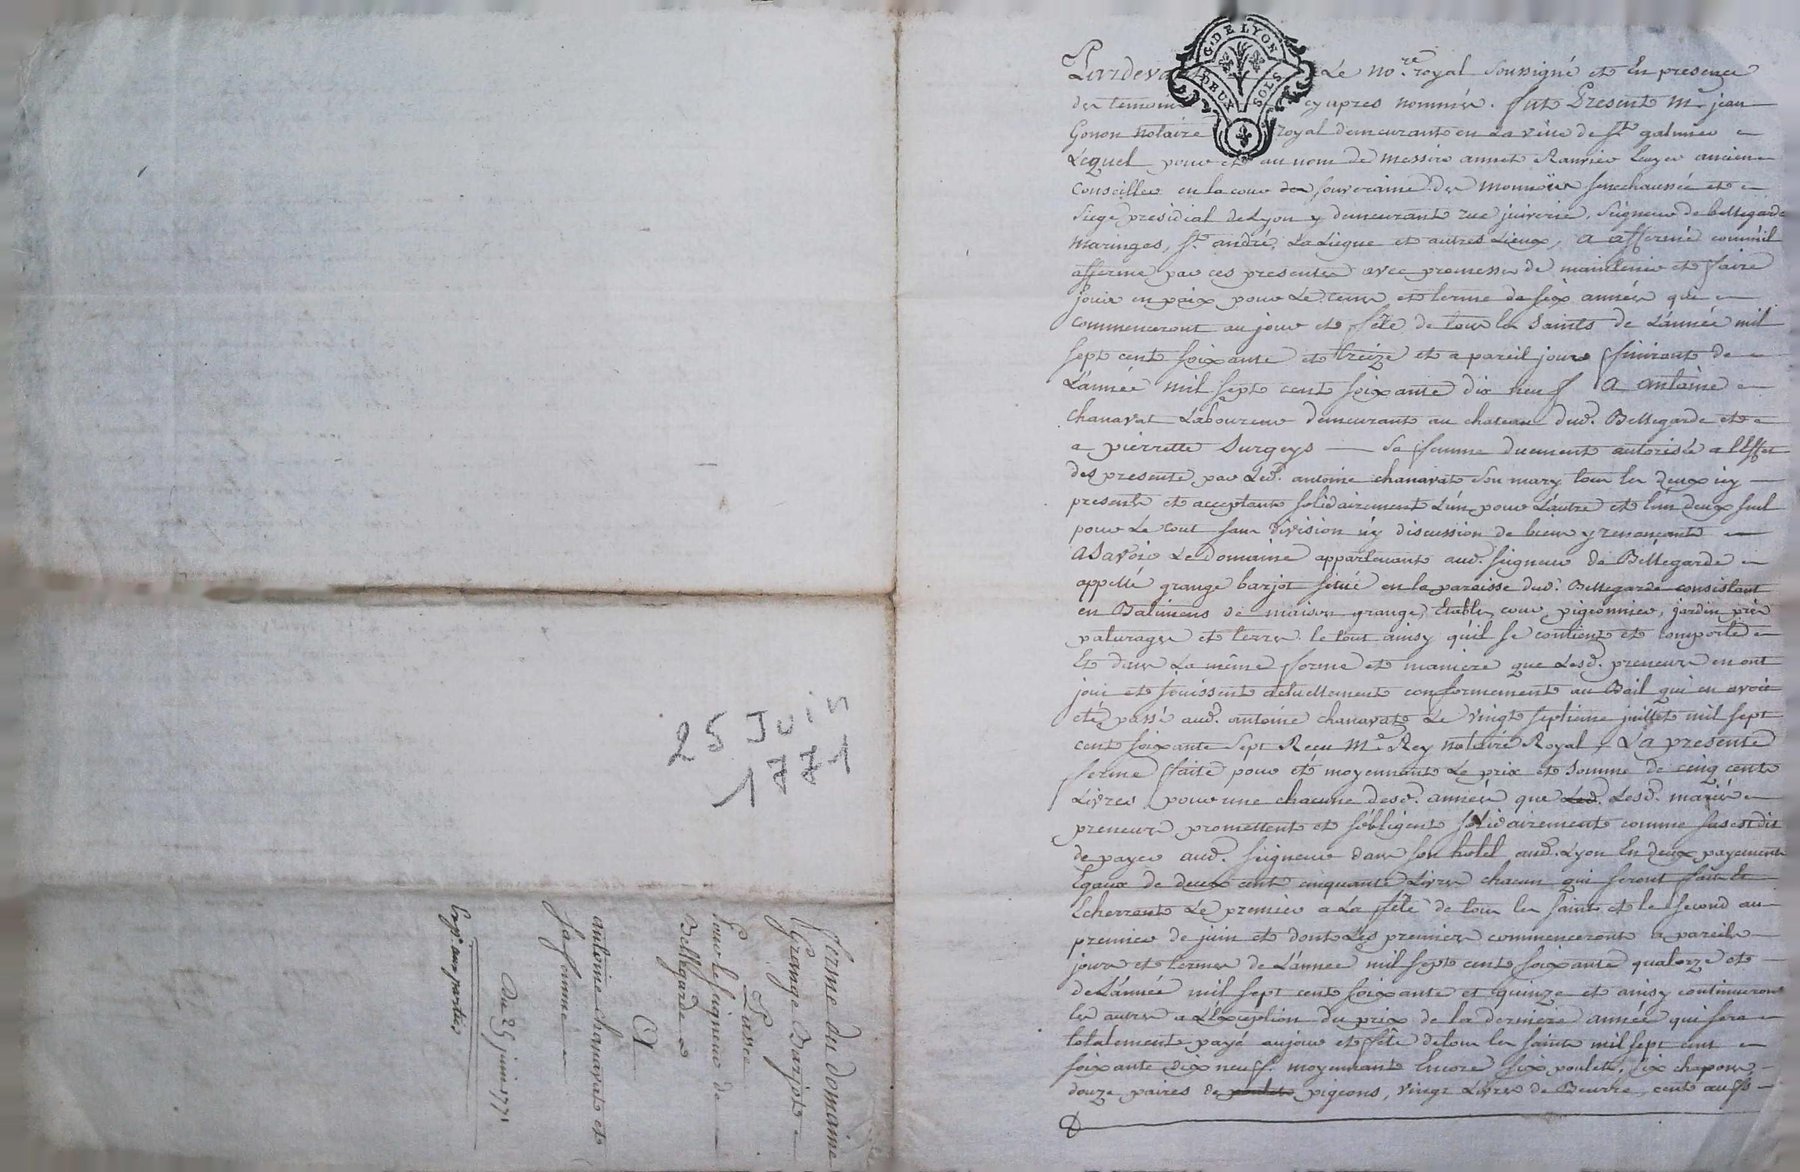 Pardevant Le no.re royal soussigné et En presence
des temoins cy apres nommés. fut Present Me jean
Gonon notaire royal demeurant en la ville de St galmier
Lequel pour et au nom de messire annet Ranvier Ecuyer ancien
Conseiller en la cour des souveraine des monnoies senechaussée et
siege presidial de Lyon y demeurant rue juiverie, seigneur de bellegarde
maringes, St andré, La Liegue et autres Lieux, a affermé comm'il
afferme par ces presentes avec promesse de maintenir et faire
jouir en paix pour Le tems et terme de six années qui
commenceront au jour et fête de tous les saints de L'année mil
sept cent soixante et treize et a pareil jour finiront de
L'année mil sept cent soixante dix neuf a antoine
chanavat Laboureur demeurant au chateau dud. Bellegarde et
a pierrette Surgeys sa femme duement autorisée a l'Effet
des presente par Led. antoine chanavat son mary tous les deux icy
presents et acceptant solidairement L'un pour L'autre et l'un deux seul
pour Le tout sans division ny discussion de biens y renonçant
a Savoir Le domaine appartenant aud. seigneur de Bellegarde
appellé grange barjot situé en la paroisse dud. Bellegarde consistant
en Batimens de maison grange, Etables cour pigeonnier, jardin prés
paturages et terres le tout ainsy qu'il se contient et comporte
Et dans La même forme et maniere que Lesd. preneurs en ont
joui et jouissent actuellement conformement au Bail qui en avoit
eté passé aud. antoine chanavat Le vingt septieme juillet mil sept
cent soixante sept Recu Me Rey notaire Royal, La presente
ferme faite pour et moyennant Le prix et somme de cinq cents
Livres pour une chacune desd. années que Led. Lesd. mariés
preneurs promettent et s'obligent solidairement comme sus est dit
de payer aud. seigneur dans son hotel aud. Lyon En deux payements
Egaux de deux cent cinquante Livres chacun qui seront fait Et
Echerront Le premier a La fête de tous les saints et le second au
premier de juin et dont Les premiers commenceront a pareils
jours et termes de L'année mil sept cent soixante quatorze et
de L'année mil sept cent soixante et quinze et ainsy continueront
les autres a L'exception du prix de la derniere année qui sera
totalement payé au jour et fête de tous les saints mil sept cent
soixante dix neuf. moyennant Encore six poulets, six chapons,
douze paires de poulets pigeons, vingt Livres de Beurre, cent œufs
25 Juin
1771
ferme du domaine
Grange Barjot
Passé
Pour le seigneur de
Bellegarde
A
antoine chanavat et
sa femme
du 25 juin 1771
Exp. aux parties
G. DE LYON
DEUX SOLS